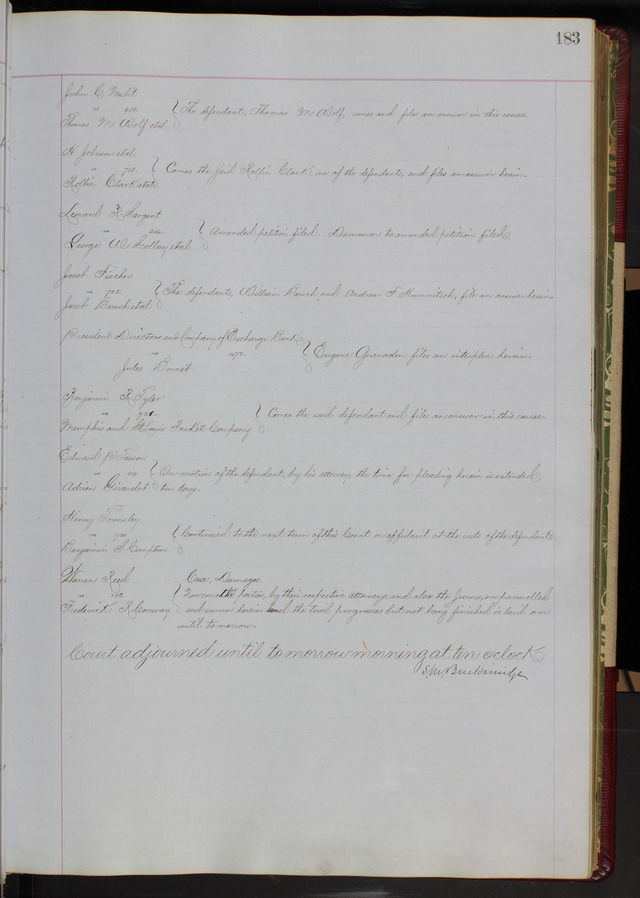 183
John C. Nesbit
" vs.
Thomas M Wolf et al } The defendant, Thomas M Wolf, comes and files an answer in this cause.
H. Johnson et al.
" vs.
Rollin Clark et al } Comes the said Rollin Clark, one of the defendants, and files an answer herein.
Leonard R. Sargent
" vs.
George W. Scollay et al } Amended petition filed. Demurrer to amended petition filed.
Jacob Fischer
" vs.
Jacob et al } The defendants, William and Andrew F. file an answer herein.
President Directors and Company of Exchange Bank
" vs.
Jules } Eugene Guenadon files an interplea herein.
Benjamin R. Tyler
" vs.
Memphis and St. Louis Packet Company } Comes the said defendant and files an answer in this cause.
Edward P.
" vs.
Adrien Girardot } On motion of the defendant, by his attorney, the time for pleading herein is extended
ten days.
Henry Townsley
" vs.
Benjamin S. Compton } Continued to the next term of this Court on affidavit at the costs of the defendant.
Warren Reed Case, Damages.
" vs. } Now come the Parties, by their respective attorneys and also the Jurors, empannelled
Frederick R. Conway and sworn herein and the trial progresses but not being finished is laid over
until to morrow.
Court adjourned until to morrow morning at ten o'clock
S. M. Breckinridge